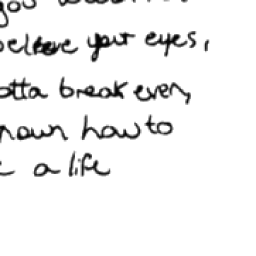 you
believe your eyes,
gotta break even,
known how to
a life